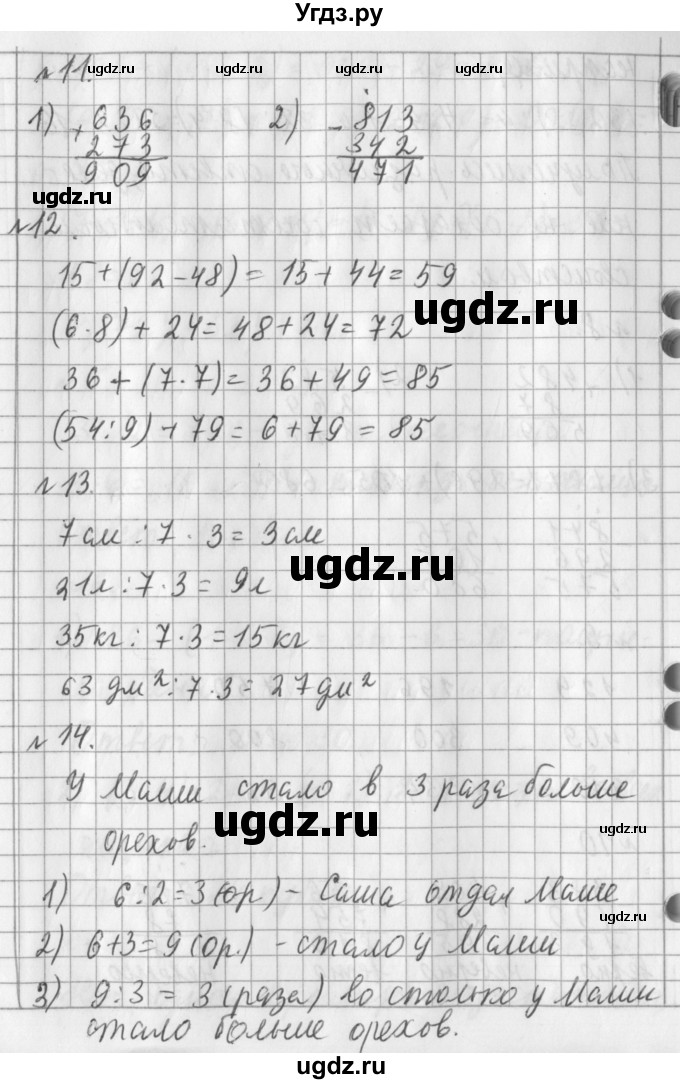 Угдз.ру
№11.
ugdz.ru ugdz.ru ugdz.ru
1) + 636 2) - 813
273 342
909 471
ugdz.ru ugdz.ru ugdz.ru
№12.
15+(92-48)=15+44=59
(6·8)+24=48+24=72
ugdz.ru
36+(7·7)=36+49=85
(54:9)+79=6+79=85
№13.
7см:7·3=3см
ugdz.ru
21л:7·3=9л
35кг:7·3=15кг
63 дм²:7·3=27дм²
№14.
У Маши стало в 3 раза больше
ugdz.ru
орехов.
1) 6:2=3(ор)- Саша отдал Маше
ugdz.ru ugdz.ru ugdz.ru
2) 6+3=9(ор.) - стало у Маши
3) 9:3=3(раза) во столько у Маши
стало больше орехов.
ugdz.ru ugdz.ru ugdz.ru
ugdz.ru